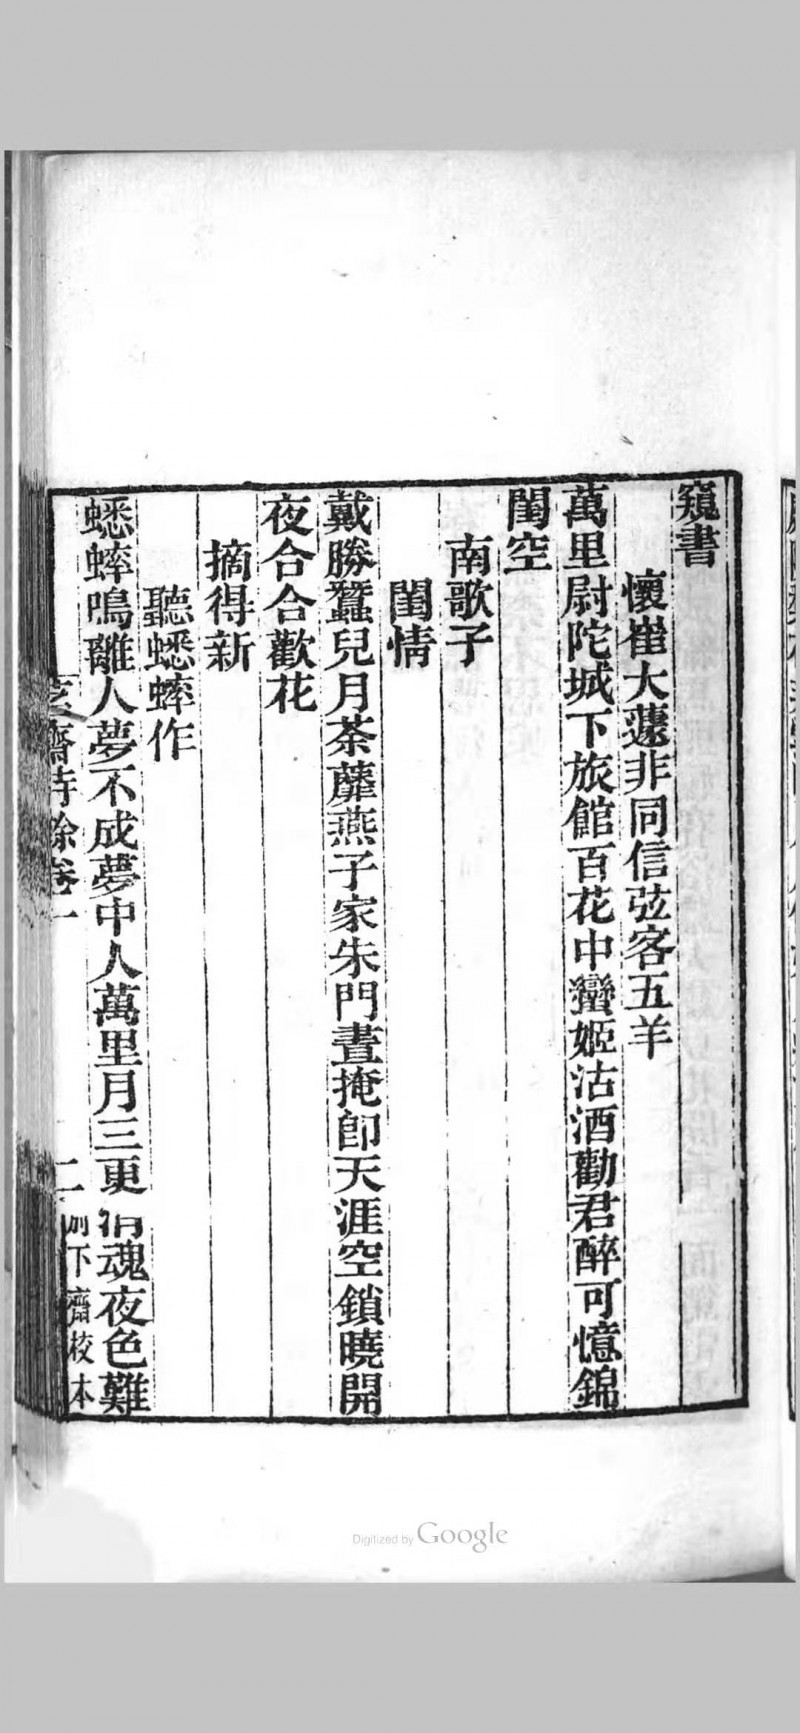 窺書
懷崔大蘧非同信弦客五羊
萬里尉陀城下旅館百花中蠻姬沽酒勸君醉可憶錦
閨空
南歌子
閨情
戴勝蠶兒月荼蘼燕子家朱門晝掩卽天涯空鎖曉開
夜合合歡花
摘得新
聽蟋蟀作
蟋蟀鳴離人夢不成夢中人萬里月三更消魂夜色難
齋詩餘卷一
二
別下齋校本
Digitized by Google